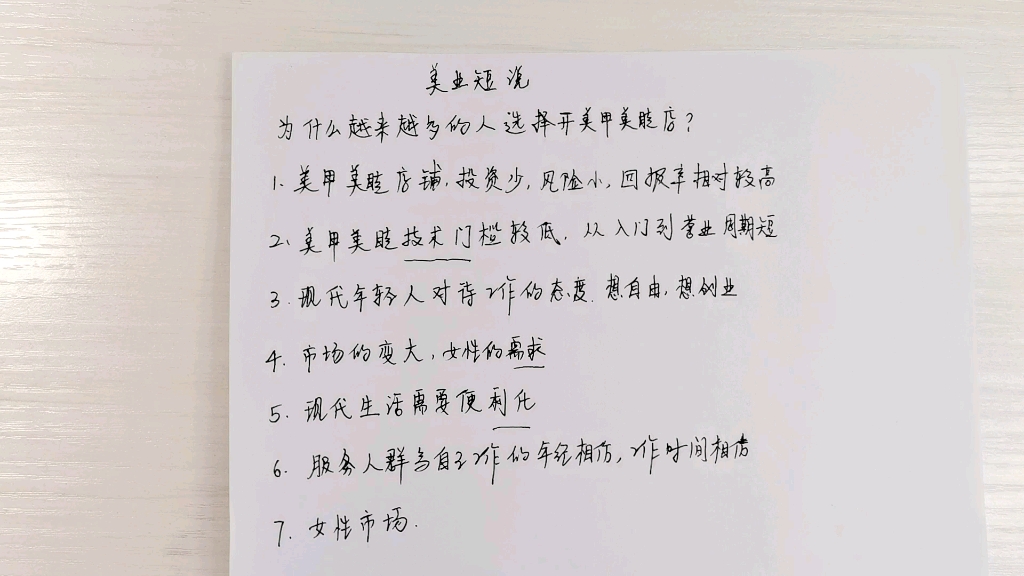 美业短说
为什么越来越多的人选择开美甲美睫店?
1. 美甲美睫店铺,投资少,风险小,回报率相对较高
2、美甲美睫技术门槛较低,从入门到营业周期短
3. 现代年轻人对待工作的态度.想自由,想创业
4. 市场的变大,女性的需求
5. 现代生活需要便利化
6. 服务人群与自主工作的年经相仿,工作时间相仿
7. 女性市场.